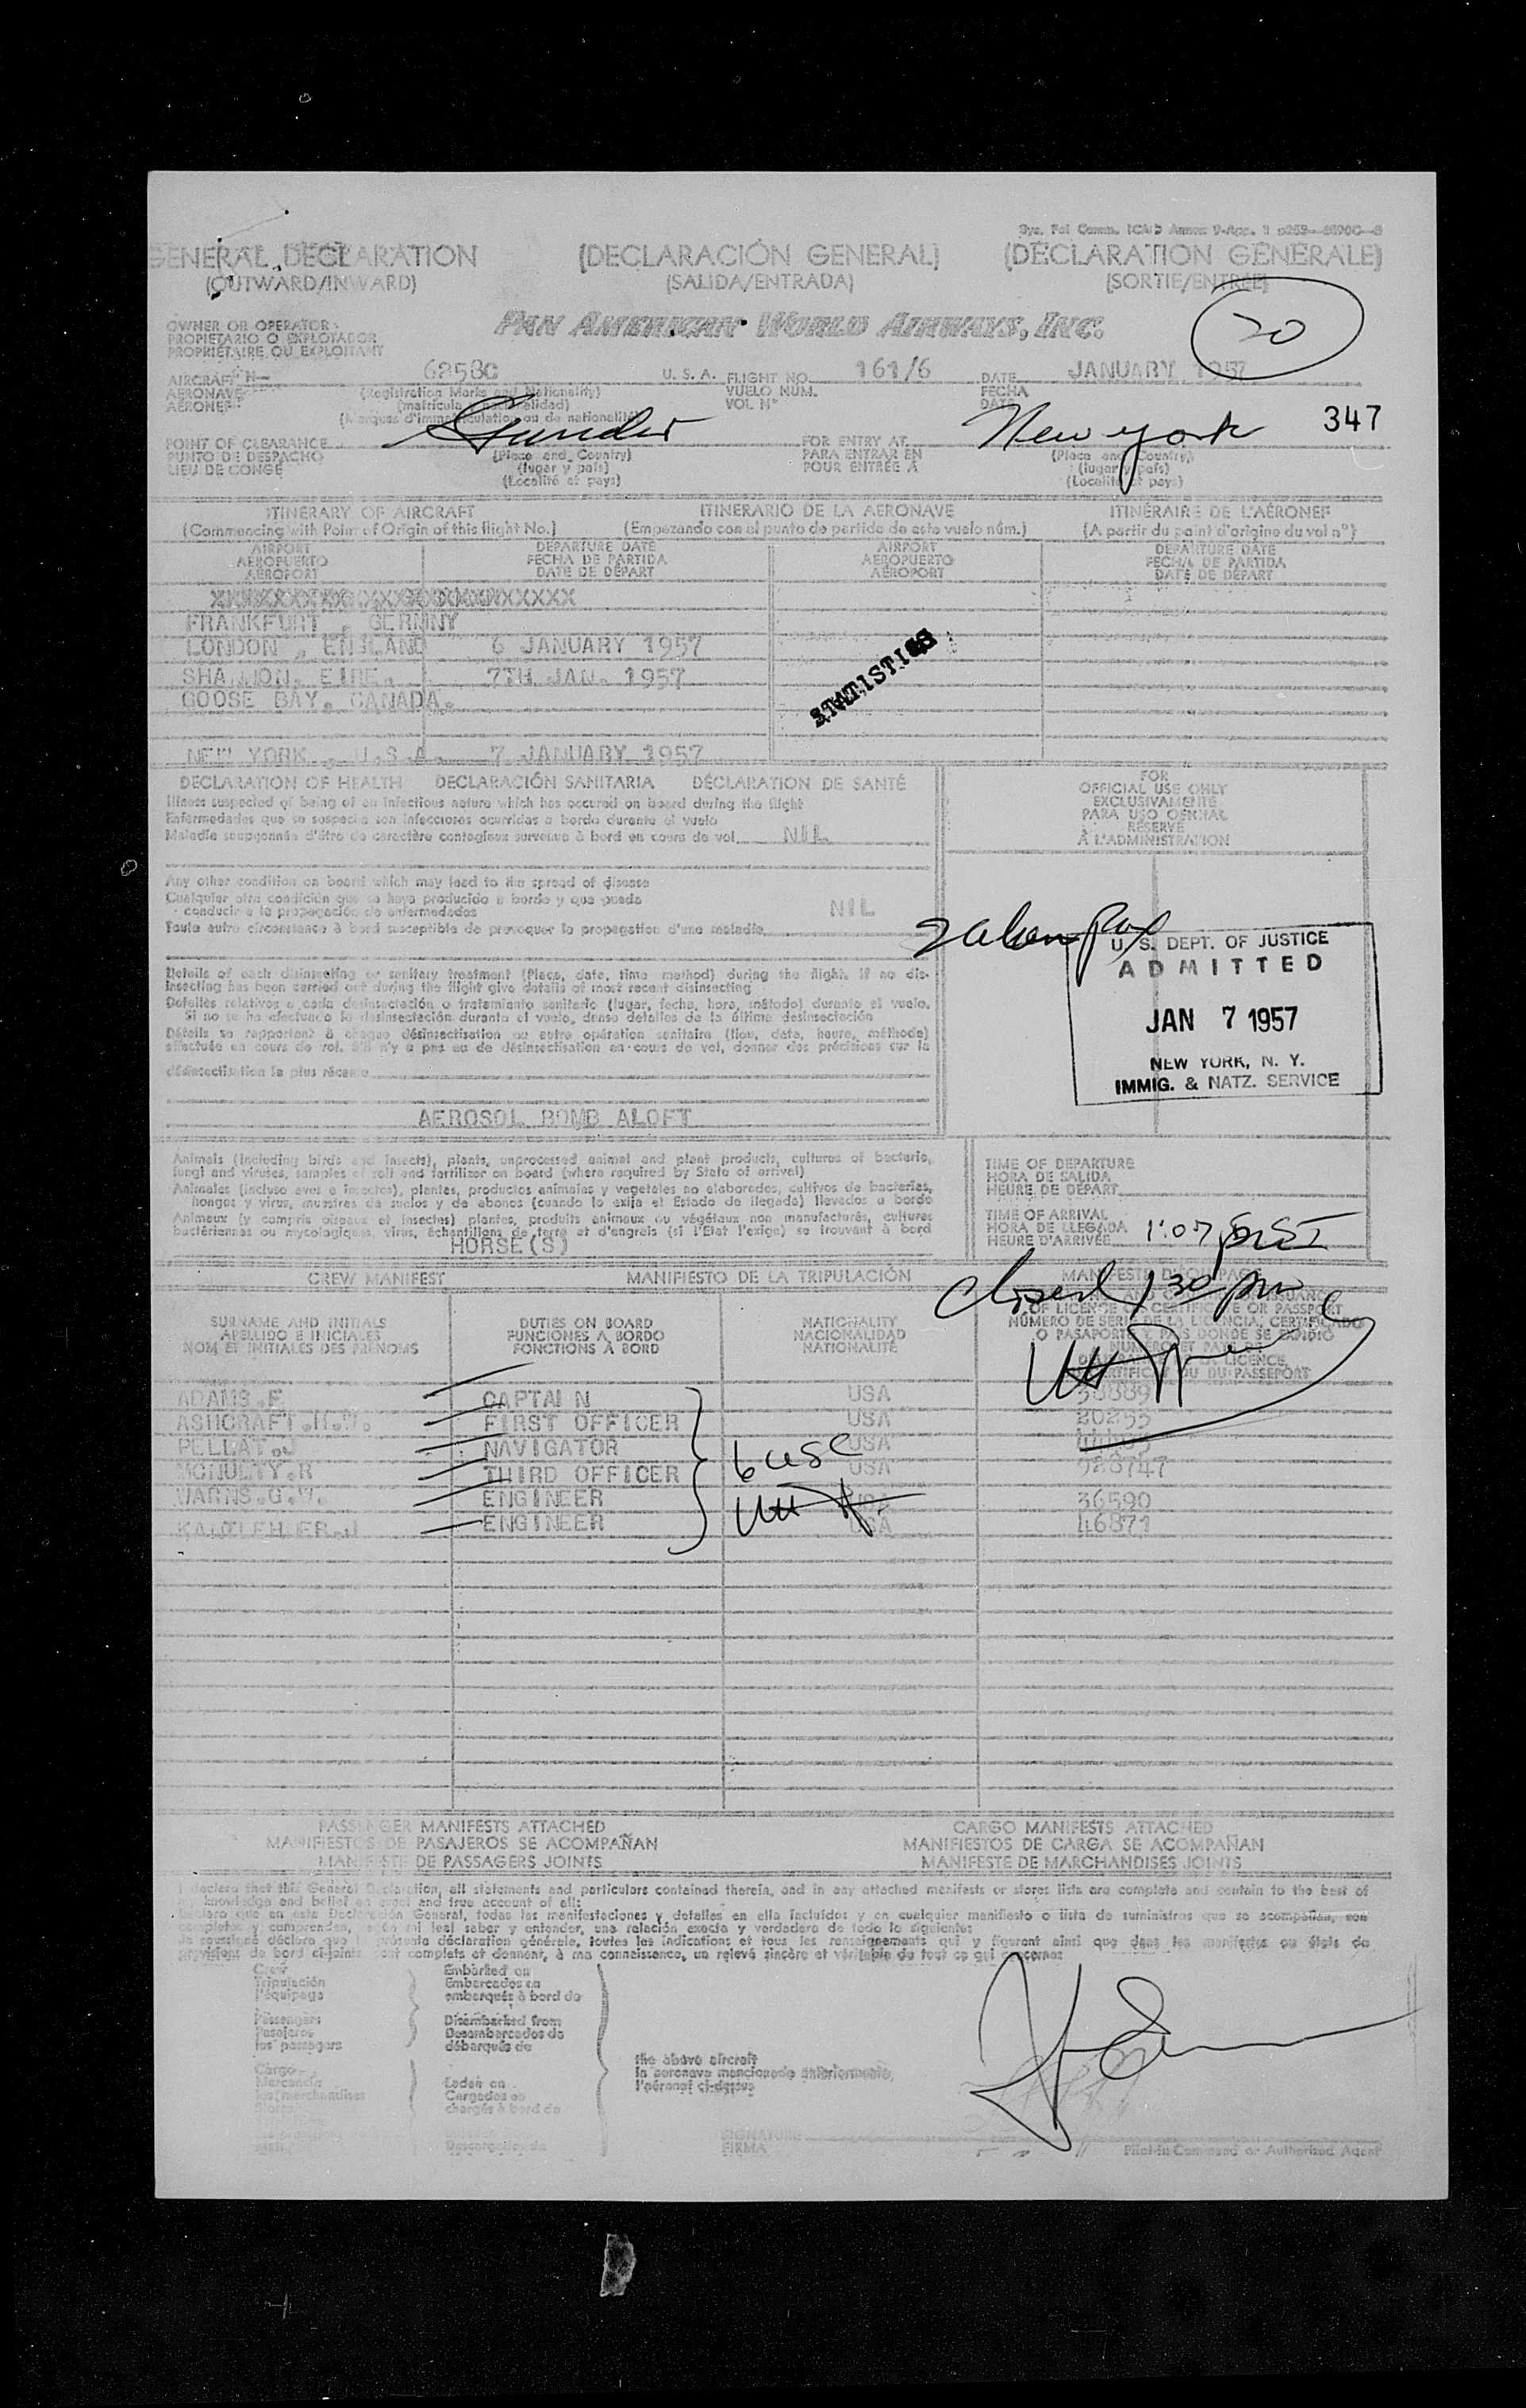 GENERAL DECLARATION (DECLARACIÓN GENERAL) (DÉCLARATION GÉNÉRALE)
(OUTWARD/INWARD) (SALIDA/ENTRADA) (SORTIE/ENTRÉE)
OWNER OR OPERATOR PAN AMERICAN WORLD AIRWAYS, INC. 20
PROPIETARIO O EXPLOTADOR
PROPRIÉTAIRE OU EXPLOITANT
AIRCRAFT N- 6258C U. S. A. FLIGHT NO. 161/6 DATE JANUARY 1957
AERONAVE (Registration Marks and Nationality) VUELO NÚM. FECHA
AÉRONEF (matrícula y nacionalidad) VOL Nº DATE
(Marques d'immatriculation ou de nationalité)
347
POINT OF CLEARANCE Gander FOR ENTRY AT New York
PUNTO DE DESPACHO (Place and Country) PARA ENTRAR EN (Place and Country)
LIEU DE CONGÉ (lugar y país) POUR ENTRÉE À (lugar y país)
(Localité et pays) (Localité et pays)
ITINERARY OF AIRCRAFT ITINERARIO DE LA AERONAVE ITINÉRAIRE DE L'AÉRONEF
(Commencing with Point of Origin of this flight No.) (Empezando con el punto de partida de este vuelo núm.) (A partir du point d'origine du vol nº)
AIRPORT DEPARTURE DATE AIRPORT DEPARTURE DATE
AEROPUERTO FECHA DE PARTIDA AEROPUERTO FECHA DE PARTIDA
AÉROPORT DATE DE DÉPART AÉROPORT DATE DE DÉPART
FRANKFURT , GERMNY
LONDON , ENGLAND 6 JANUARY 1957
SHANNON. EIRE. 7TH JAN. 1957
GOOSE BAY. CANADA.
STATISTICS
NEW YORK , U.S.A. 7 JANUARY 1957
DECLARATION OF HEALTH DECLARACIÓN SANITARIA DÉCLARATION DE SANTÉ
Illness suspected of being of an infectious nature which has occured on board during the flight
Enfermedades que se sospecha son infecciosas ocurridas a bordo durante el vuelo
Maladie soupçonnée d'être de caractère contagieux survenue à bord en cours de vol NIL
FOR
OFFICIAL USE ONLY
EXCLUSIVAMENTE
PARA USO OFICIAL
RÉSERVÉ
À L'ADMINISTRATION
Any other condition on board which may lead to the spread of disease
Cualquier otra condición que se haya producido a bordo y que pueda
conducir a la propagación de enfermedades NIL
Toute autre circonstance à bord susceptible de provoquer la propagation d'une maladie
U. S. DEPT. OF JUSTICE
ADMITTED
JAN 7 1957
NEW YORK, N. Y.
IMMIG. & NATZ. SERVICE
Details of each disinsecting or sanitary treatment (Place, date, time method) during the flight. If no dis-
insecting has been carried out during the flight give details of most recent disinsecting
Detalles relativos a cada desinsectación o tratamiento sanitario (lugar, fecha, hora, método) durante el vuelo.
Si no se ha efectuado la desinsectación durante el vuelo, dense detalles de la última desinsectación
Détails se rapportant à chaque désinsectisation ou autre opération sanitaire (lieu, date, heure, méthode)
effectuée en cours de vol. S'il n'y a pas eu de désinsectisation en cours de vol, donner des précisions sur la
désinsectisation la plus récente
AEROSOL BOMB ALOFT
Animals (including birds and insects), plants, unprocessed animal and plant products, cultures of bacteria,
fungi and viruses, samples of soil and fertilizer on board (where required by State of arrival)
Animales (incluso aves e insectos), plantas, productos animales y vegetales no elaborados, cultivos de bacterias,
hongos y virus, muestras de suelos y de abonos (cuando lo exija el Estado de llegada) llevados a bordo
Animaux (y compris oiseaux et insectes) plantes, produits animaux ou végétaux non manufacturés, cultures
bactériennes ou mycologiques, virus, échantillons de terre et d'engrais (si l'Etat l'exige) se trouvant à bord
HORSE(S)
TIME OF DEPARTURE
HORA DE SALIDA
HEURE DE DÉPART
TIME OF ARRIVAL
HORA DE LLEGADA 1:07
HEURE D'ARRIVÉE
CREW MANIFEST MANIFIESTO DE LA TRIPULACIÓN MANIFESTE D'ÉQUIPAGE
closed 1 30 pm
SURNAME AND INITIALS DUTIES ON BOARD NATIONALITY OF LICENCE CERTIFICATE OR PASSPORT
APELLIDO E INICIALES FUNCIONES A BORDO NACIONALIDAD NÚMERO DE SERIE DE LA LICENCIA, CERTIFICADO
NOM ET INITIALES DES PRÉNOMS FONCTIONS À BORD NATIONALITÉ O PASAPORTE Y PAÍS DONDE SE EXPIDIÓ
ADAMS.F CAPTAIN USA
ASHCRAFT.H.W. FIRST OFFICER USA
PELLAT.J NAVIGATOR USA
MCNULTY.R THIRD OFFICER USA 988747
WARNS.G.W. ENGINEER USA 36590
ENGINEER USA 46871
base
PASSENGER MANIFESTS ATTACHED CARGO MANIFESTS ATTACHED
MANIFIESTOS DE PASAJEROS SE ACOMPAÑAN MANIFIESTOS DE CARGA SE ACOMPAÑAN
MANIFESTE DE PASSAGERS JOINTS MANIFESTE DE MARCHANDISES JOINTS
I declare that this General Declaration, all statements and particulars contained therein, and in any attached manifests or stores lists are complete and contain to the best of
my knowledge and belief an exact and true account of all:
Declaro que en esta Declaración General, todas las manifestaciones y detalles en ella incluidos y en cualquier manifiesto o lista de suministros que se acompañan, son
completos y comprenden, según mi leal saber y entender, una relación exacta y verdadera de todo lo siguiente:
Je soussigné déclare que la présente déclaration générale, toutes les indications et tous les renseignements qui y figurent ainsi que dans les manifestes ou états de
provisions de bord ci-joints sont complets et donnent, à ma connaissance, un relevé sincère et véritable de tout ce qui concerne:
Crew Embarked on
Tripulación Embarcados en
l'équipage embarqués à bord de
Passengers Disembarked from
Pasajeros Desembarcados de
les passagers débarqués de
the above aircraft
la aeronave mencionada anteriormente,
l'aéronef ci-dessus
Cargo Laden on
Mercancía Cargados en
les marchandises chargés à bord de
Descargados de
SIGNATURE
FIRMA Pilot-in-Command or Authorized Agent